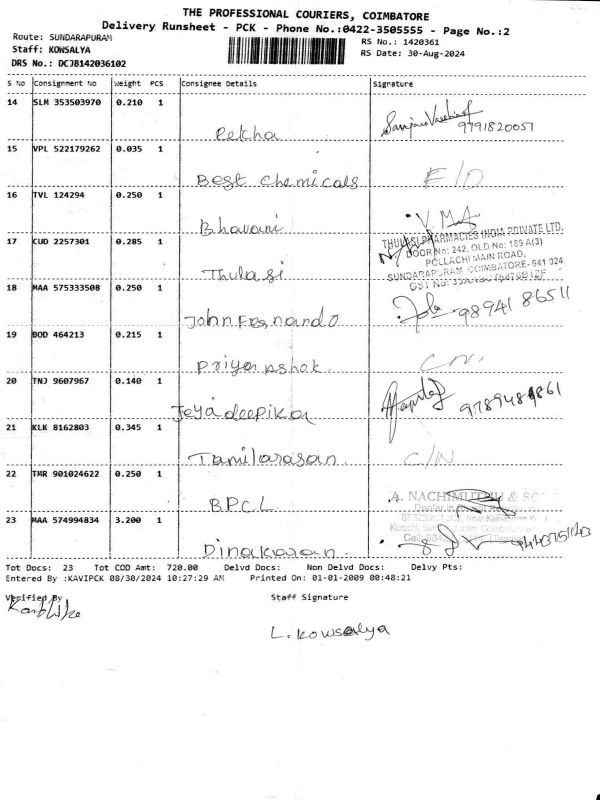 THE PROFESSIONAL COURIERS, COIMBATORE
Delivery Runsheet - PCK - Phone No.:0422-3505555 - Page No.:2
Route: SUNDARAPURAM
RS No.: 1420361
Staff: KOWSALYA
RS Date: 30-Aug-2024
DRS No.: DCJB142036102
S No Consignment No Weight PCS Consignee Details Signature
14 SLM 353503970 0.210 1 Rekha 9791820051
15 VPL 522179262 0.035 1 Best Chemicals E/D
16 TVL 124294 0.250 1 Bhavani
17 CUD 2257301 0.285 1 Thulasi
THULASI PHARMACIES INDIA PRIVATE LTD.
DOOR No: 242, OLD No: 189 A(3)
POLLACHI MAIN ROAD,
SUNDARAPURAM, COIMBATORE- 641 024.
18 MAA 575333508 0.250 1 John Fernando 98941 86511
19 BOD 464213 0.215 1 Priya Ashok
20 TNJ 9607967 0.140 1 Jeyadeepika
21 KLK 8162803 0.345 1 Tamilarasan C/N
22 TMR 901024622 0.250 1 BPCL
A. NACHIMUTHU &
23 MAA 574994834 3.200 1 Dinakaran
Tot Docs: 23 Tot COD Amt: 720.00 Delvd Docs: Non Delvd Docs: Delvy Pts:
Entered By :KAVIPCK 08/30/2024 10:27:29 AM Printed On: 01-01-2009 00:48:21
Verified By Staff Signature
L. Kowsalya